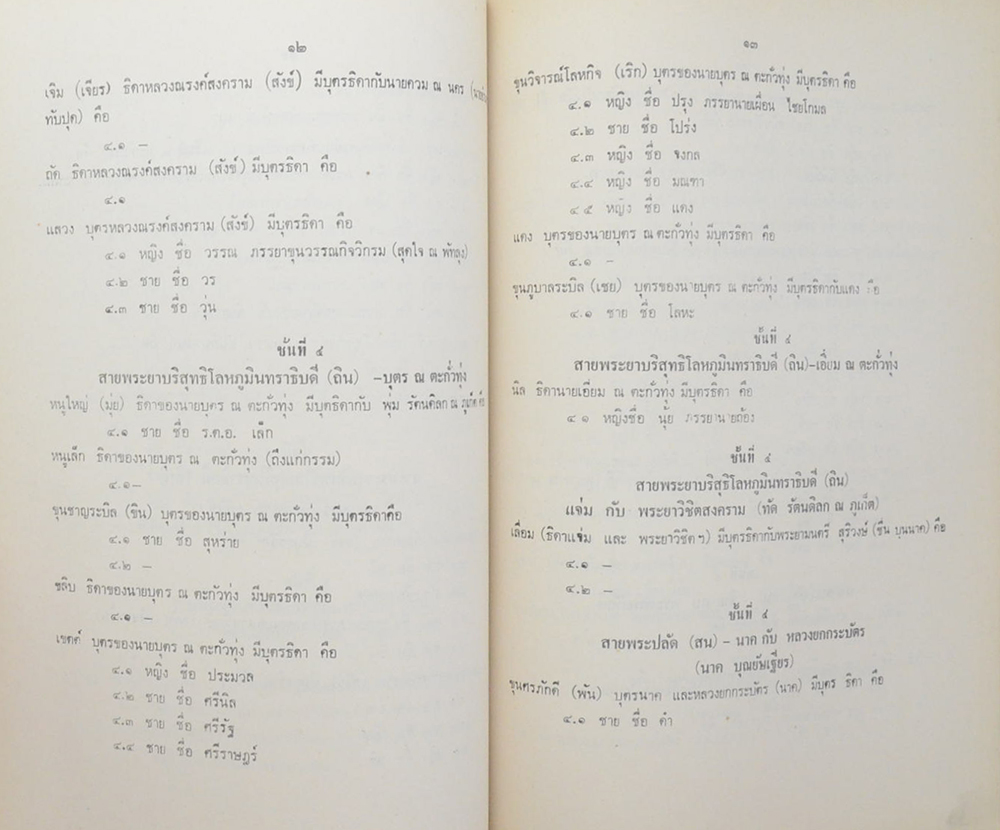 ๑๒
เจิม (เจียร) ธิดาหลวงณรงค์สงคราม (สังข์) มีบุตรธิดากับนายควม ณ นคร
ทับปุด) คือ
๔.๑ –
ถัด ธิดาหลวงณรงค์สงคราม (สังข์) มีบุตรธิดา คือ
๔.๑
แสวง บุตรหลวงณรงค์สงคราม (สังข์) มีบุตรธิดา คือ
๔.๑ หญิง ชื่อ วรรณ ภรรยาขุนวรรณกิจวิกรม (สุดใจ ณ พัทลุง)
๔.๒ ชาย ชื่อ วร
๔.๓ ชาย ชื่อ วุ่น
ชั้นที่ ๔
สายพระยาบริสุทธิโลหภูมินทราธิบดี (ถิน) –บุตร ณ ตะกั่วทุ่ง
หนูใหญ่ (มุ่ย) ธิดาของนายบุตร ณ ตะกั่วทุ่ง มีบุตธิดากับ พุ่ม รัตนดิลก ณ ภูเก็ต คือ
๔.๑ ชาย ชื่อ ร.ต.อ. เล็ก
หนูเล็ก ธิดาของนายบุตร ณ ตะกั่วทุ่ง (ถึงแก่กรรม)
๔.๑–
ขุนชาญระบิล (ขิน) บุตรของนายบุตร ณ ตะกั่วทุ่ง มีบุตรธิดาคือ
๔.๑ ชาย ชื่อ สุหร่าย
๔.๒ –
ชลิบ ธิดาของนายบุตร ณ ตะกั่วทุ่ง มีบุตรธิดา คือ
๔.๑ –
เขตต์ บุตรของนายบุตร ณ ตะกั่วทุ่ง มีบุตรธิดา คือ
๔.๑ หญิง ชื่อ ประมวล
๔.๒ ชาย ชื่อ ศรีนิล
๔.๓ ชาย ชื่อ ศรีรัฐ
๔.๔ ชาย ชื่อ ศรีราษฎร์
๑๓
ขุนวิจารณ์โลหกิจ (เริก) บุตรของนายบุตร ณ ตะกั่วทุ่ง มีบุตรธิดา คือ
๔.๑ หญิง ชื่อ ปรุง ภรรยานายเผื่อน ไชยโกมล
๔.๒ ชาย ชื่อ โปร่ง
๔.๓ หญิง ชื่อ จงกล
๔.๔ หญิง ชื่อ มณฑา
๔.๕ หญิง ชื่อ แดง
แดง บุตรของนายบุตร ณ ตะกั่วทุ่ง มีบุตรธิดา คือ
๔.๑ –
ขุนภูบาลระบิล (เชย) บุตรของนายบุตร ณ ตะกั่วทุ่ง มีบุตรธิดากับแดง คือ
๔.๑ ชาย ชื่อ โลหะ
ชั้นที่ ๔
สายพระยาบริสุทธิโลหภูมินทราธิบดี (ถิน)–เอี่ยม ณ ตะกั่วทุ่ง
นิล ธิดานายเอี่ยม ณ ตะกั่วทุ่ง มีบุตรธิดา คือ
๔ ๑ หญิงชื่อ นุ้ย ภรรยานายถ้อง
ชั้นที่ ๔
สายพระยาบริสุธิโลหภูมินทราธิบดี (ถิน)
แจ่ม กับ พระยาวิชิตสงคราม (ทัด รัตนดิลก ณ ภูเก็ต)
เลื่อม (ธิดาแจ่ม และ พระยาวิชิตฯ) มีบุตรธิดากับพระยามนตรี สุริวงษ์ (ชื่น บุนนาค) คือ
๔.๑ –
๔.๒ –
ชั้นที่ ๔
สายพระปลัด (สน) – นาค กับ หลวงยกกระบัตร
(นาค บุณยัษเฐียร)
ขุนศรภักดี (พัน) บุตรนาค และหลวงยกกระบัตร (นาค) มีบุตร ธิดา คือ
๔.๑ ชาย ชื่อ คำ